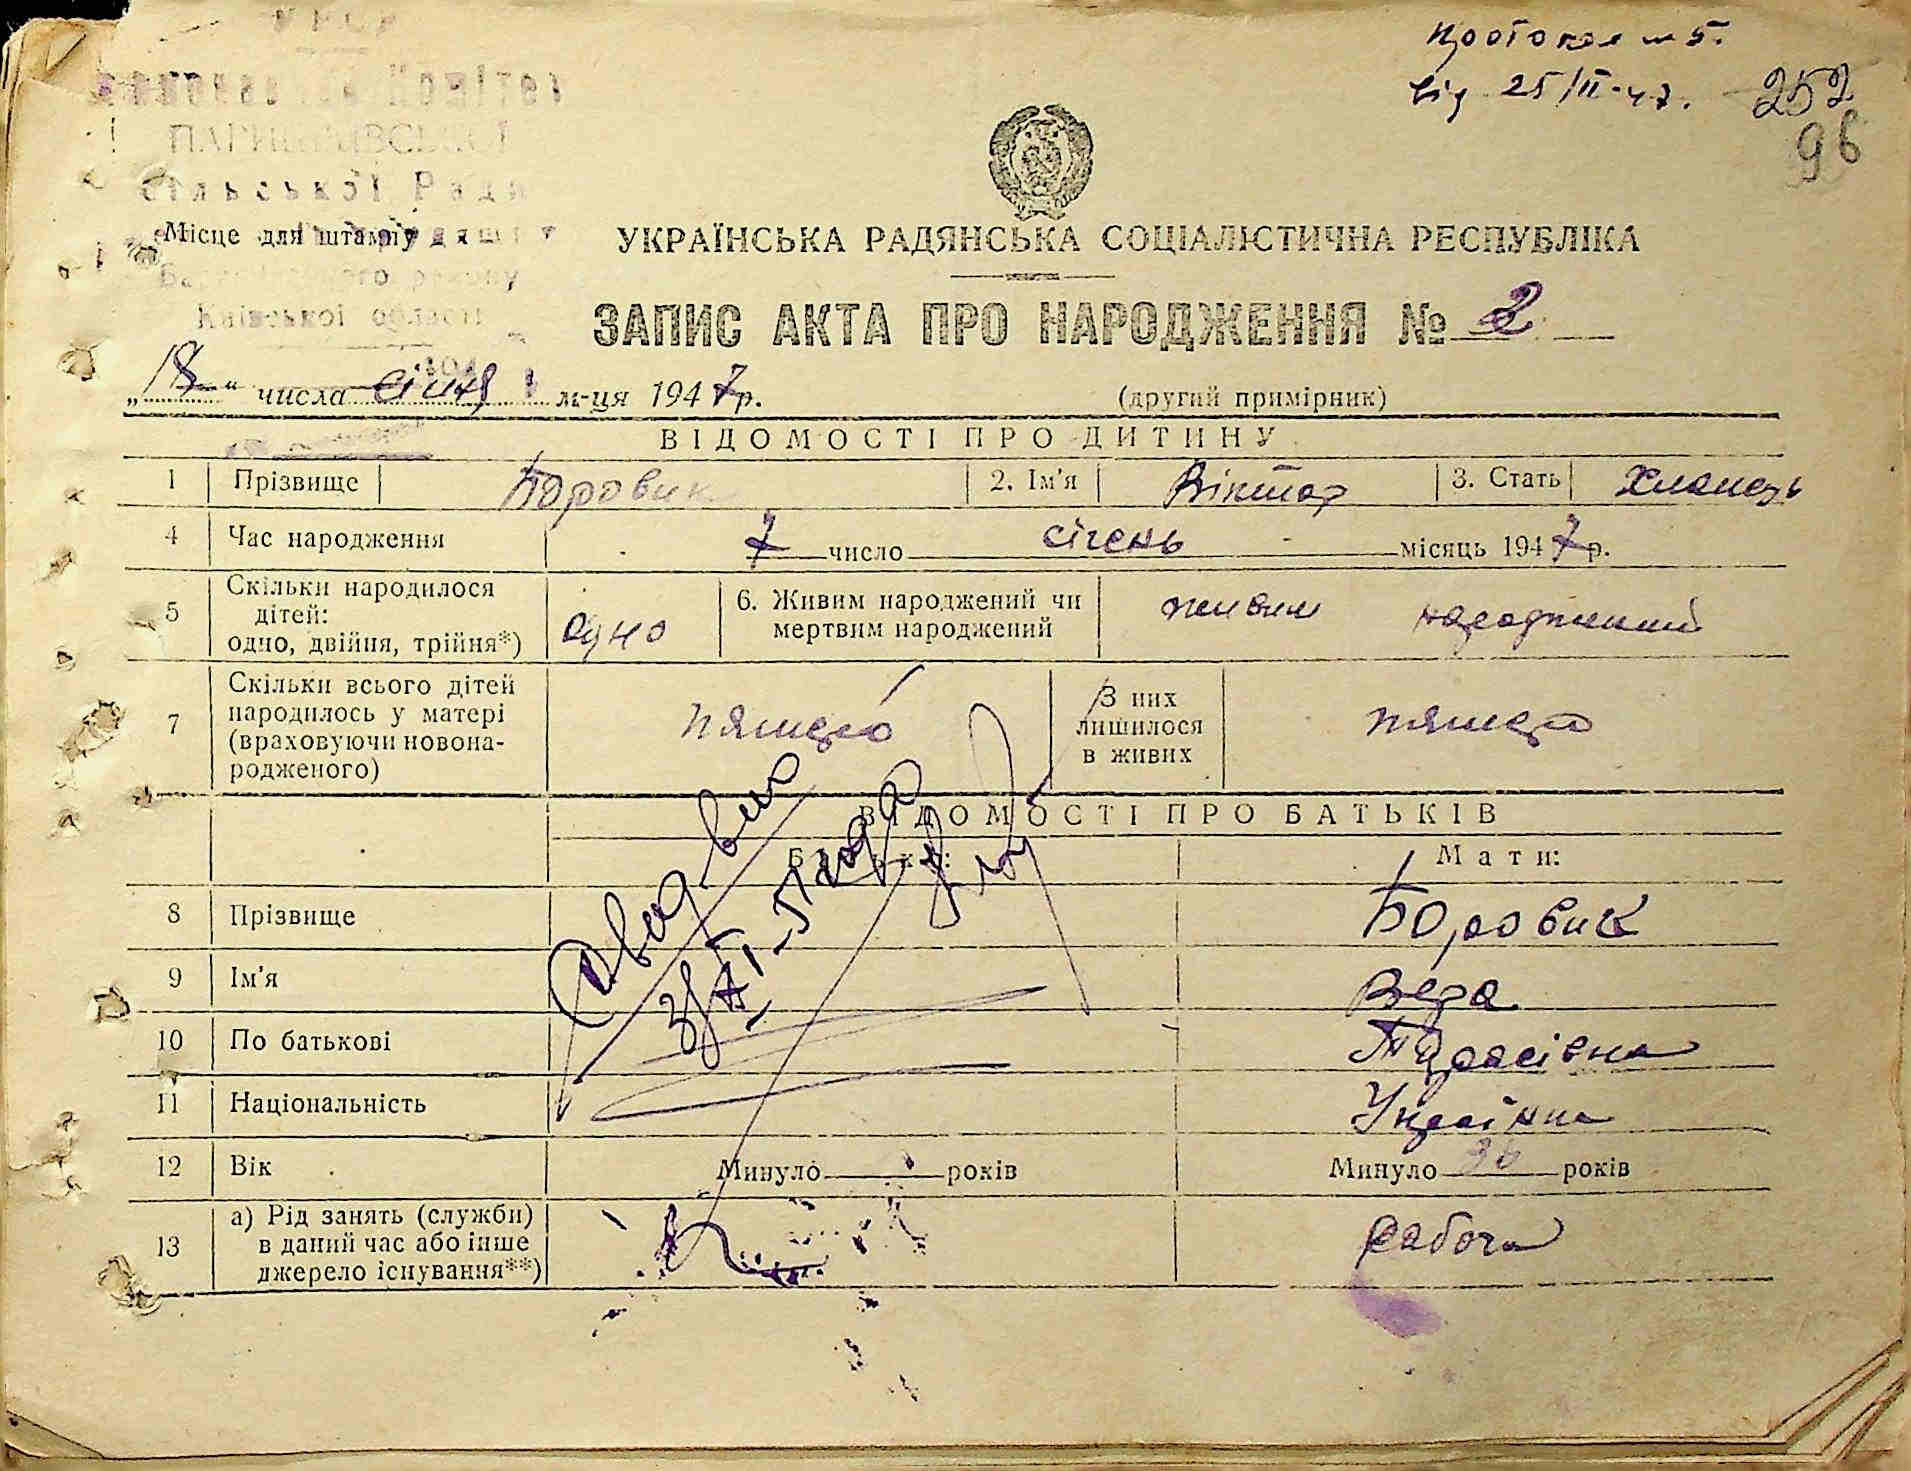 Протокол № 5.
від 25/II-47.
252
96
УРСР
сільської Ради
Київської області
Місце для штампу
УКРАЇНСЬКА РАДЯНСЬКА СОЦІАЛІСТИЧНА РЕСПУБЛІКА
ЗАПИС АКТА ПРО НАРОДЖЕННЯ № 2
„18“ числа січня м-ця 1947р.
(другий примірник)
ВІДОМОСТІ ПРО ДИТИНУ
1 Прізвище Боровик 2. Ім'я Віктор 3. Стать хлопець
4 Час народження 7 число січень місяць 1947р.
5 Скільки народилося дітей: одно, двійня, трійня*) одно 6. Живим народжений чи мертвим народжений живим народжений
7 Скільки всього дітей народилось у матері (враховуючи новонародженого) пятеро З них лишилося в живих пятеро
ВІДОМОСТІ ПРО БАТЬКІВ
Батько: Мати:
8 Прізвище Боровик
9 Ім'я Вера
10 По батькові Тарасівна
11 Національність Українка
12 Вік Минуло років Минуло 36 років
13 а) Рід занять (служби) в даний час або інше джерело існування**) рабоча